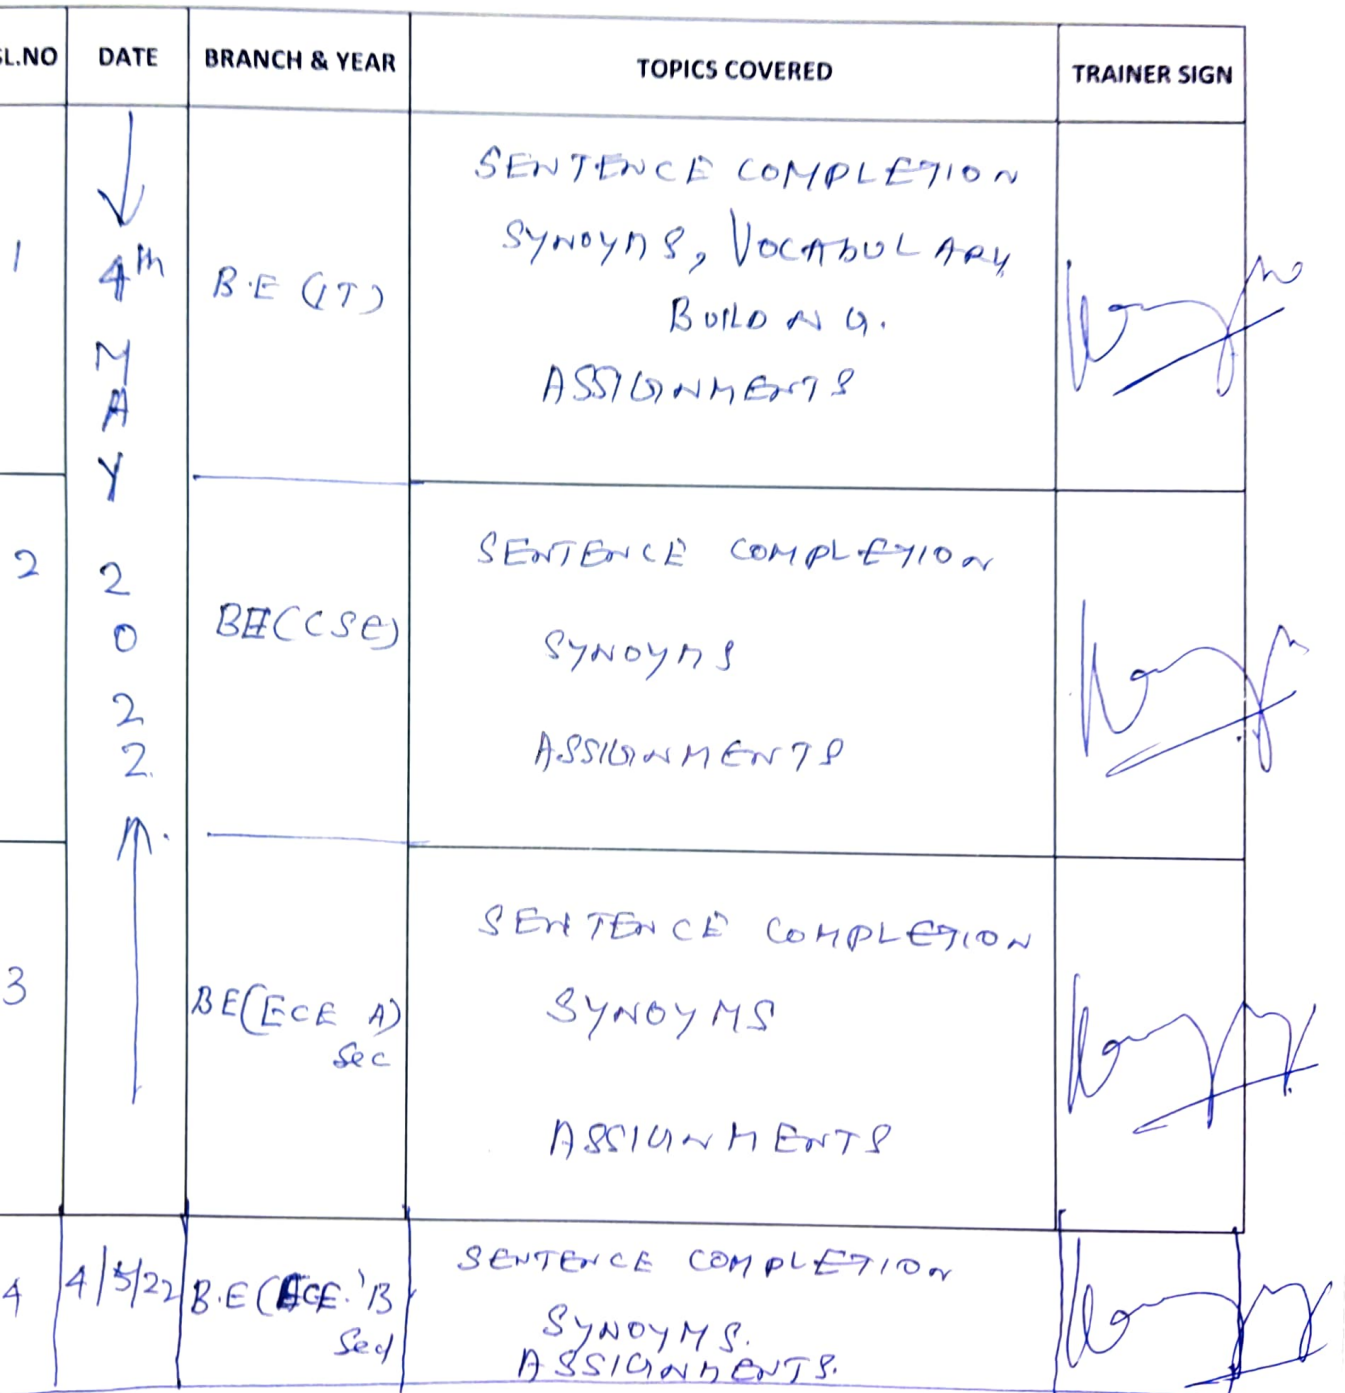 SL.NO DATE BRANCH & YEAR TOPICS COVERED TRAINER SIGN
1
4th
MAY
2022
B.E (IT)
SENTENCE COMPLETION
SYNOYMS, VOCABULARY
BUILDNG.
ASSIGNMENTS
2
BE(CSE)
SENTENCE COMPLETION
SYNOYMS
ASSIGNMENTS
3
BE(ECE A)
Sec
SENTENCE COMPLETION
SYNOYMS
ASSIGNMENTS
4 4/5/22 B.E(ECE.'B
Sec)
SENTENCE COMPLETION
SYNOYMS.
ASSIGNMENTS.